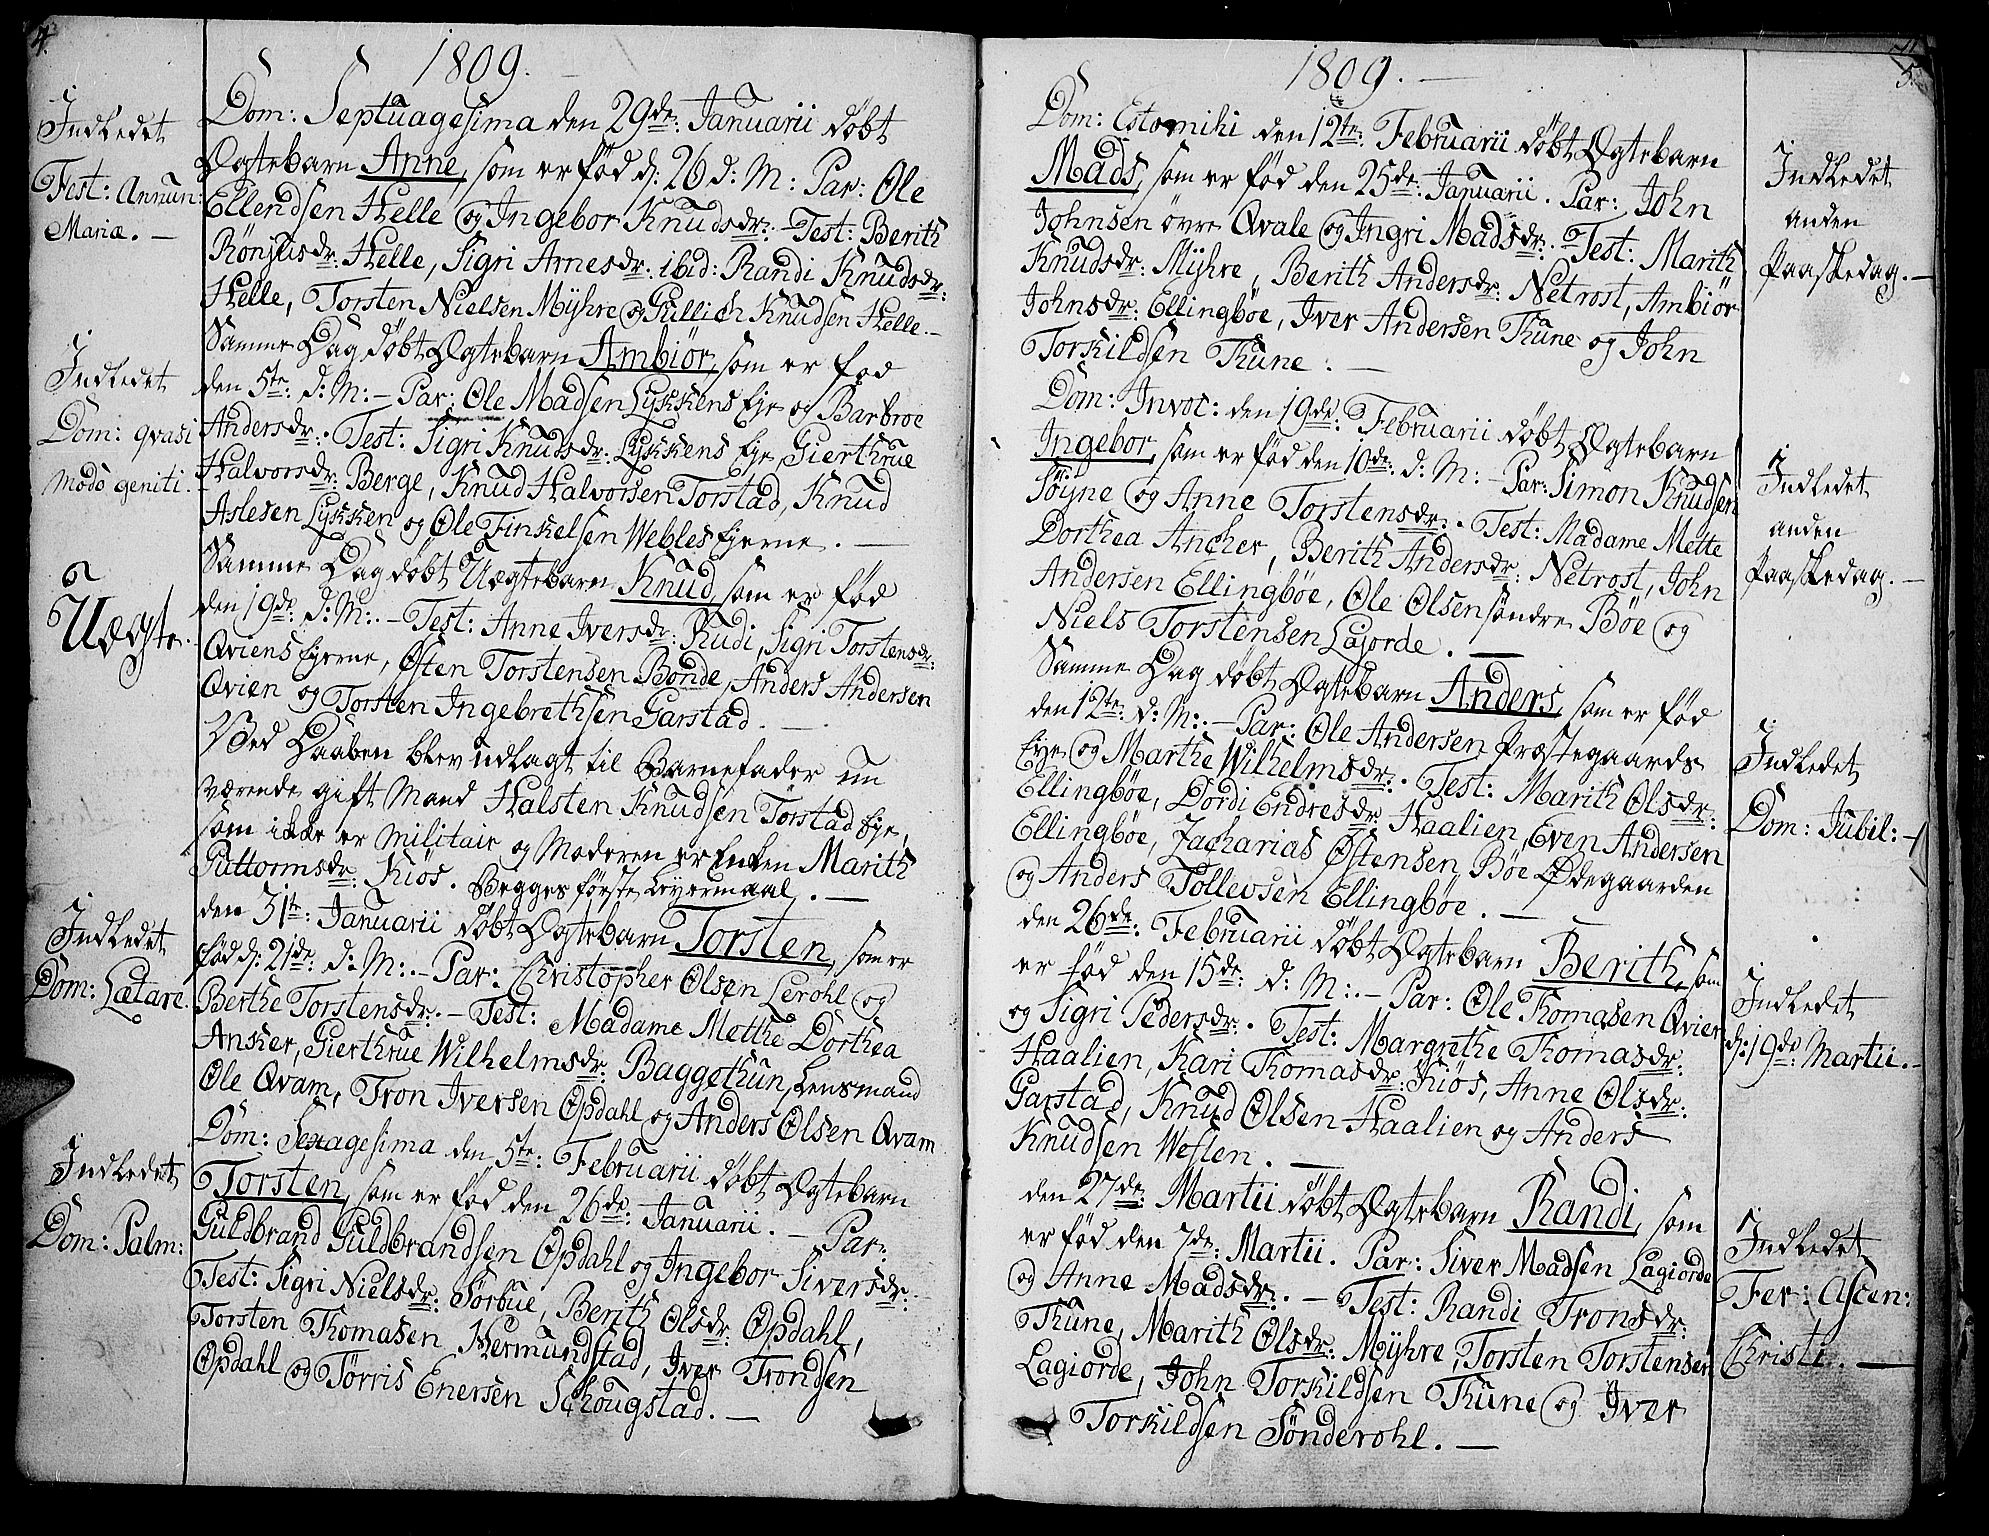 4.
1809.
Indledet
Fest: Annun:
Mariæ. —
Dom: Septuagesima den 29de: Januarii døbt
Ægtebarn Anne, som er fød d: 26 d: M: Par: Ole
Ellendsen Helle og Ingebor Knudsdr: - Test: Berith
Rönjusdr: Helle, Sigri Arnesdr: ibid: Randi Knudsdr:
Helle, Torsten Nielsen Mÿhre og Gullich Knudsen Helle. —
Indledet
Dom: qvasi
modo geniti.
Samme Dag døbt Ægtebarn Ambiör, som er fød
den 5te: d: M: - Par: Ole Madsen Lykkens Eje og Barbroe
Andersdr: . Test: Sigri Knudsdr: Lykkens Eje, Gierthrue
Halvorsdr: Berge, Knud Halvorsen Torstad, Knud
Aslesen Lykken og Ole Finkelsen Webles Ejerne. —
Uægte.
Samme Dag døbt Uægtebarn Knud, som er fød
den 19de: d: M: . - Test: Anne Iversdr: Rudi, Sigri Torstensdr:
Qviens Ejerne, Østen Torstensen Bonde, Anders Andersen
Qvien og Torsten Ingebrethsen Garstad. —
Ved Daaben blev udlagt til Barnefader un
værende gift Mand Halsten Knudsen Torstad Eje,
som ikke er Militair og Moderen er Enken Marith
Guttormsdr: Kiös. Begges første Leyermaal. —
Indledet
Dom: Lætare.
den 31te: Januarii døbt Ægtebarn Torsten, som er
fød d: 21de: d: M: . - Par: Christopher Olsen Lerohl og
Berthe Torstensdr: . - Test: Madame Metthe Dorthea
Anker, Gierthrue Wilhelmsdr: Baggethun, Lensmand
Ole Qvam, Tron Iversen Opdahl og Anders Olsen Qvam
Indledet
Dom: Palm:
Dom: Sexagesima den 5te: Februarii døbt Ægtebarn
Torsten, som er fød den 26de: Januarii. - Par:
Guldbrand Guldbrandsen Opdahl og Ingebor Siversdr:
Test: Sigri Nielsdr: Sørbue, Berith Olsdr: Opdahl,
Torsten Thomasen Hermundstad, Iver Trondsen
Opdahl og Törris Enersen Schougstad. —
5.
1809. —
Dom: Estomihi den 12te: Februarii døbt Ægtebarn
Mads, som er fød den 25de: Januarii. Par: John
Johnsen övre Qvale og Ingri Madsdr: . - Test: Marith
Knudsdr: Mÿhre, Berith Andersdr: Netrost, Ambiör
Johnsdr: Ellingböe, Iver Andersen Thune og John
Torkildsen Thune. —
Indledet
anden
Paaskedag. —
Dom: Invoc: den 19de: Februarii døbt Ægtebarn
Ingebor, som er fød den 10de: d: M: - Par: Simon Knudsen
Föÿne og Anne Torstensdr: . Test: Madame Mette
Dorthea Ancher, Berith Andersdr: Netrost, John
Andersen Ellingböe, Ole Olsen søndre Böe og
Niels Torstensen Lajorde. —
Indledet
anden
Paaskedag. —
Samme Dag døbt Ægtebarn Anders, som er fød
den 12te: d: M: . - Par: Ole Andersen Præstegaards
Eje og Marthe Wilhelmsdr: . Test: Marith Olsdr:
Ellingböe, Dordi Endresdr: Haalien, Even Andersen
Ellingböe, Zacharias Östensen Böe Ødegaarden
og Anders Tollevsen Ellingböe. —
Indledet
Dom: Jubil: -
den 26de: Februarii døbt Ægtebarn Berith, som
er fød den 15de: d: M: . - Par: Ole Thomasen Qvien
og Sigri Pedersdr: . Test: Margrethe Thomasdr:
Haalien, Kari Thomasdr: Kiös, Anne Olsdr:
Garstad, Knud Olsen Haalien og Anders
Knudsen Weflen. —
Indledet
d: 19de Martii. -
den 27de: Martii døbt Ægtebarn Randi, som
er fød den 7de: Martii. Par: Siver Madsen Lagiorde
og Anne Madsdr: . - Test: Randi Tronsdr:
Thune, Marith Olsdr: Mÿhre, Torsten Torstensen
Lagiorde, John Torkildsen Thune og Iver
Torkildsen Sönderohl. —
Indledet
Fer: Ascen:
Christi. —